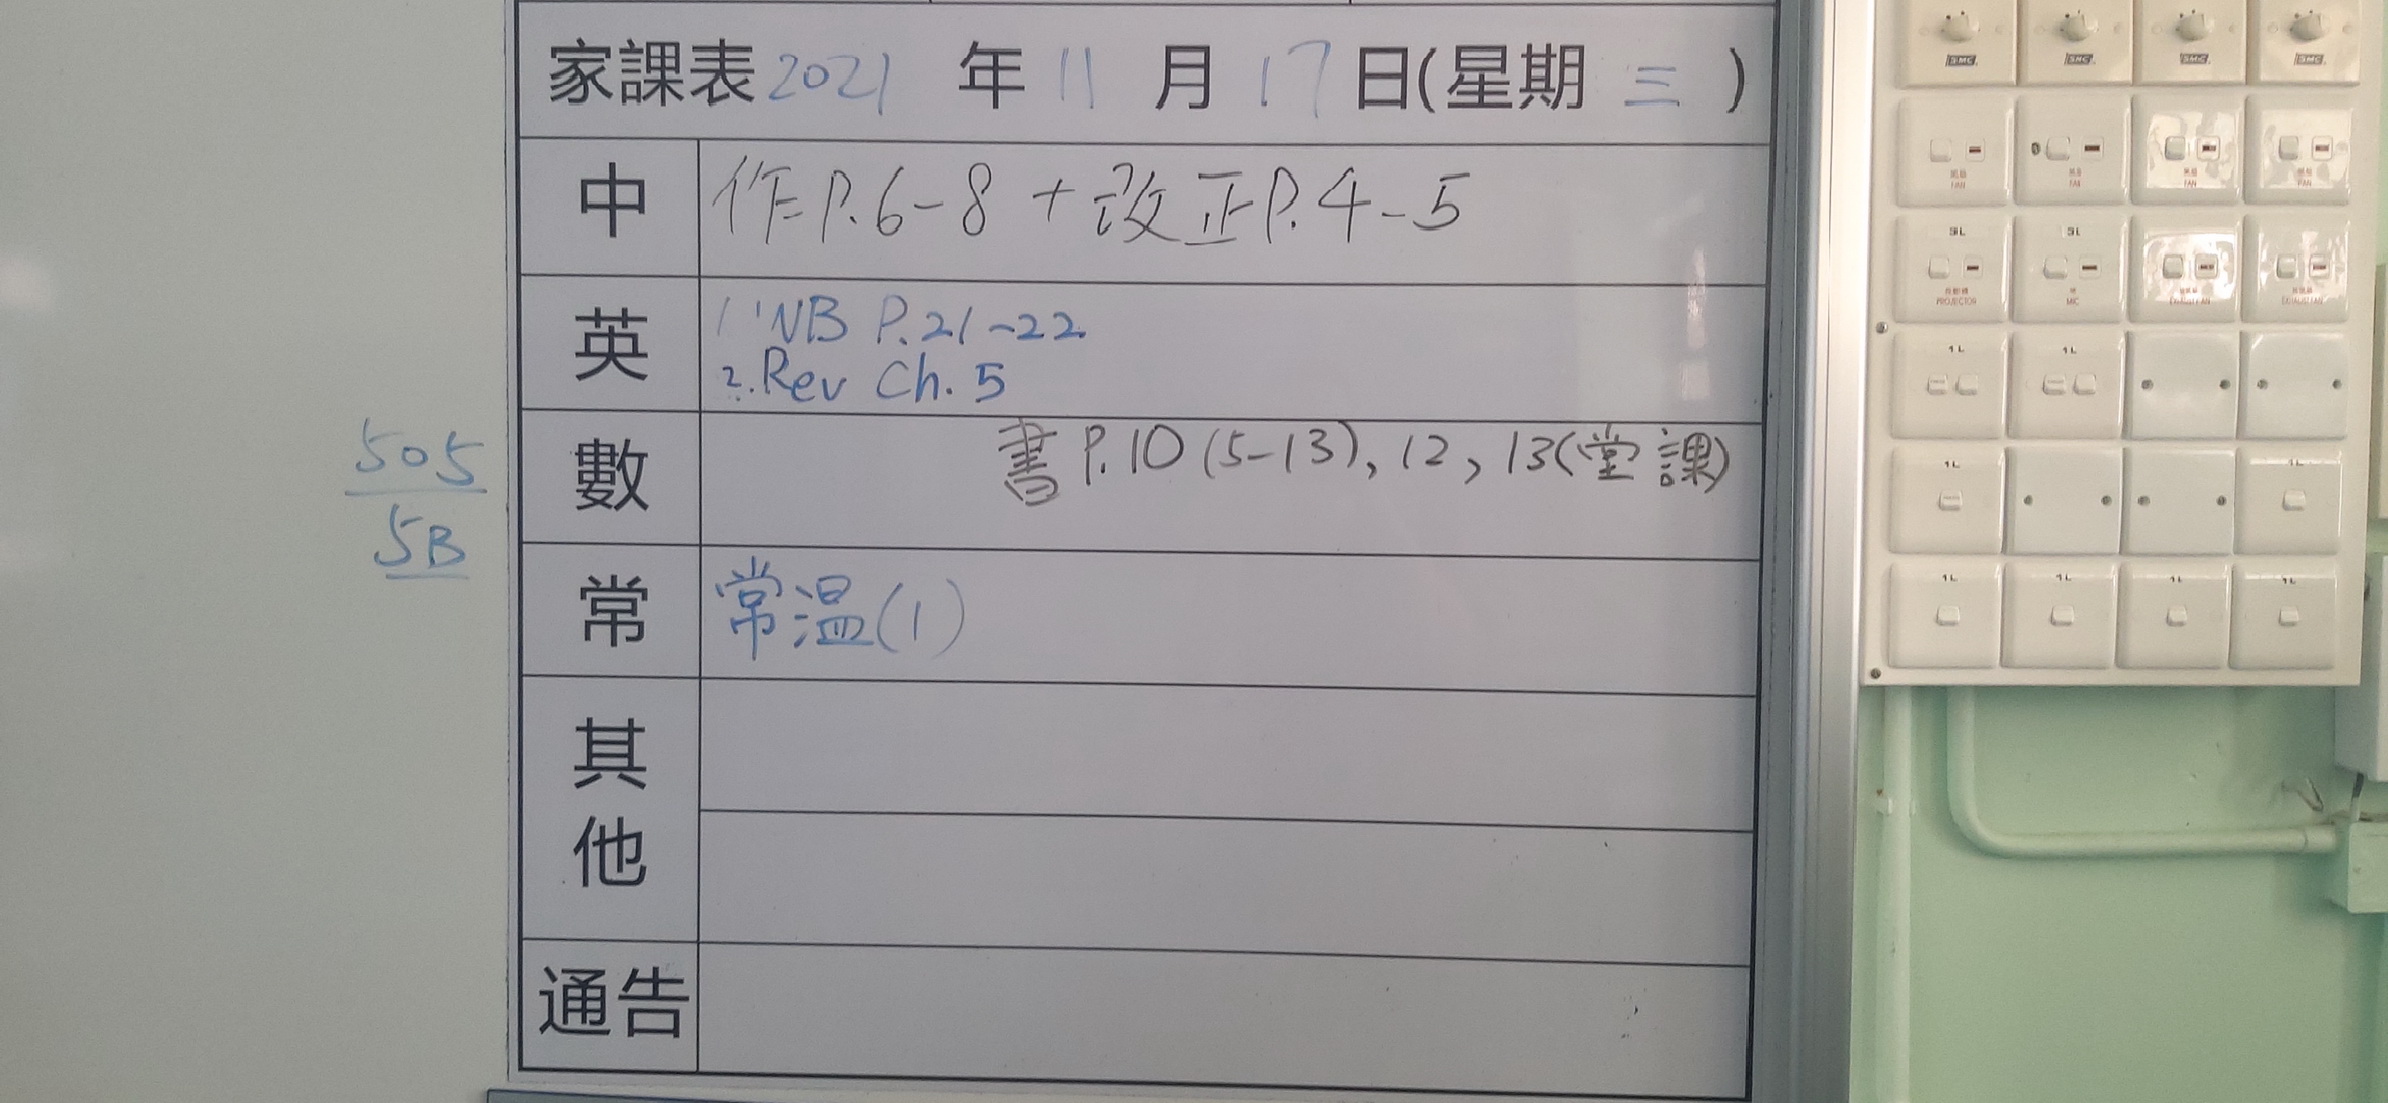 家課表 2021 年 11 月 17 日(星期 三 )
中 作P.6-8 + 改正P.4-5
英 1. NB P.21-22
2. Rev Ch. 5
505
5B
數 書 P.10 (5-13), 12, 13(堂課)
常 常温(1)
其他
通告
SMC SMC SMC SMC
FAN FAN FAN FAN
SL SL
PROJECTOR MIC EXHAUST FAN EXHAUST FAN
1L 1L
1L 1L
1L 1L 1L 1L